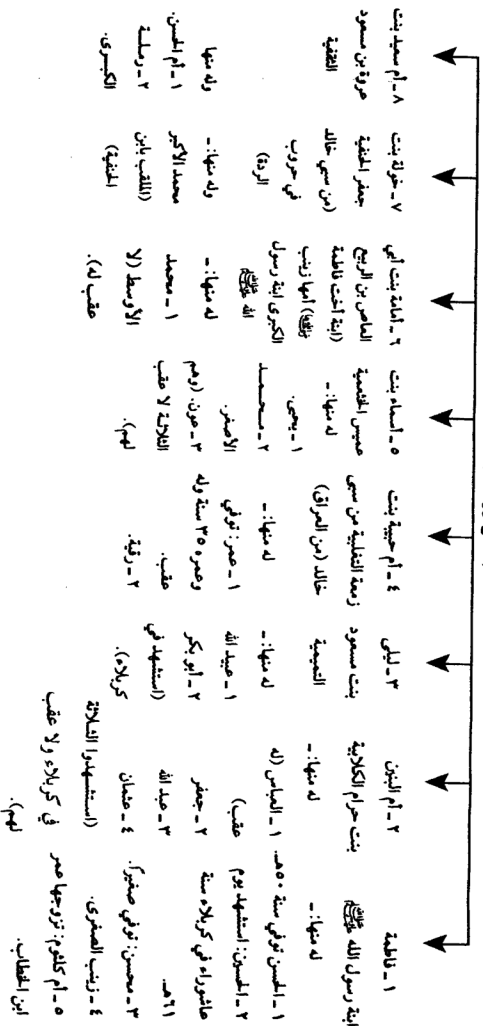 ١ - فاطمة
ابنة رسول الله ﷺ
له منها: -
١ - الحسن توفي سنة ٥٠هـ.
٢ - الحسين: استشهد يوم
عاشوراء في كربلاء سنة
٦١هـ.
٣ - محسن: توفي صغيراً.
٤ - زينب الصغرى.
٥ - أم كلثوم: تزوجها عمر
ابن الخطاب.
٢ - أم البنين
بنت حرام الكلابية
له منها: -
١ - العباس (له
عقب)
٢ - جعفر
٣ - عبد الله
٤ - عثمان
(استشهدوا الثلاثة
في كربلاء ولا عقب
لهم).
٣ - ليلى
بنت مسعود
التميمية
له منها: -
١ - عبيد الله
٢ - أبو بكر
(استشهد في
كربلاء).
٤ - أم حبيبة بنت
زمعة التغلبية من سبي
خالد (من العراق)
له منها: -
١ - عمر: توفي
وعمره ٣٥ سنة وله
عقب.
٢ - رقية.
٥ - أسماء بنت
عميس الخثعمية
له منها: -
١ - يحيى.
٢ - محمد
الأصغر.
٣ - عون. (وهم
الثلاثة لا عقب
لهم).
٦ - أمامة بنت أبي
العاص بن الربيع
(ابنة أخت فاطمة
) أمها زينب
الكبرى ابنة رسول
الله ﷺ
له منها: -
١ - محمد
الأوسط (لا
عقب له).
٧ - خولة بنت
جعفر الحنفية
(من سبي خالد
في حروب
الردة)
وله منها: -
محمد الأكبر
(الملقب بابن
الحنفية)
٨ - أم سعيد بنت
عروة بن مسعود
الثقفية
وله منها
١ - أم الحسن.
٢ - رملة
الكبرى.